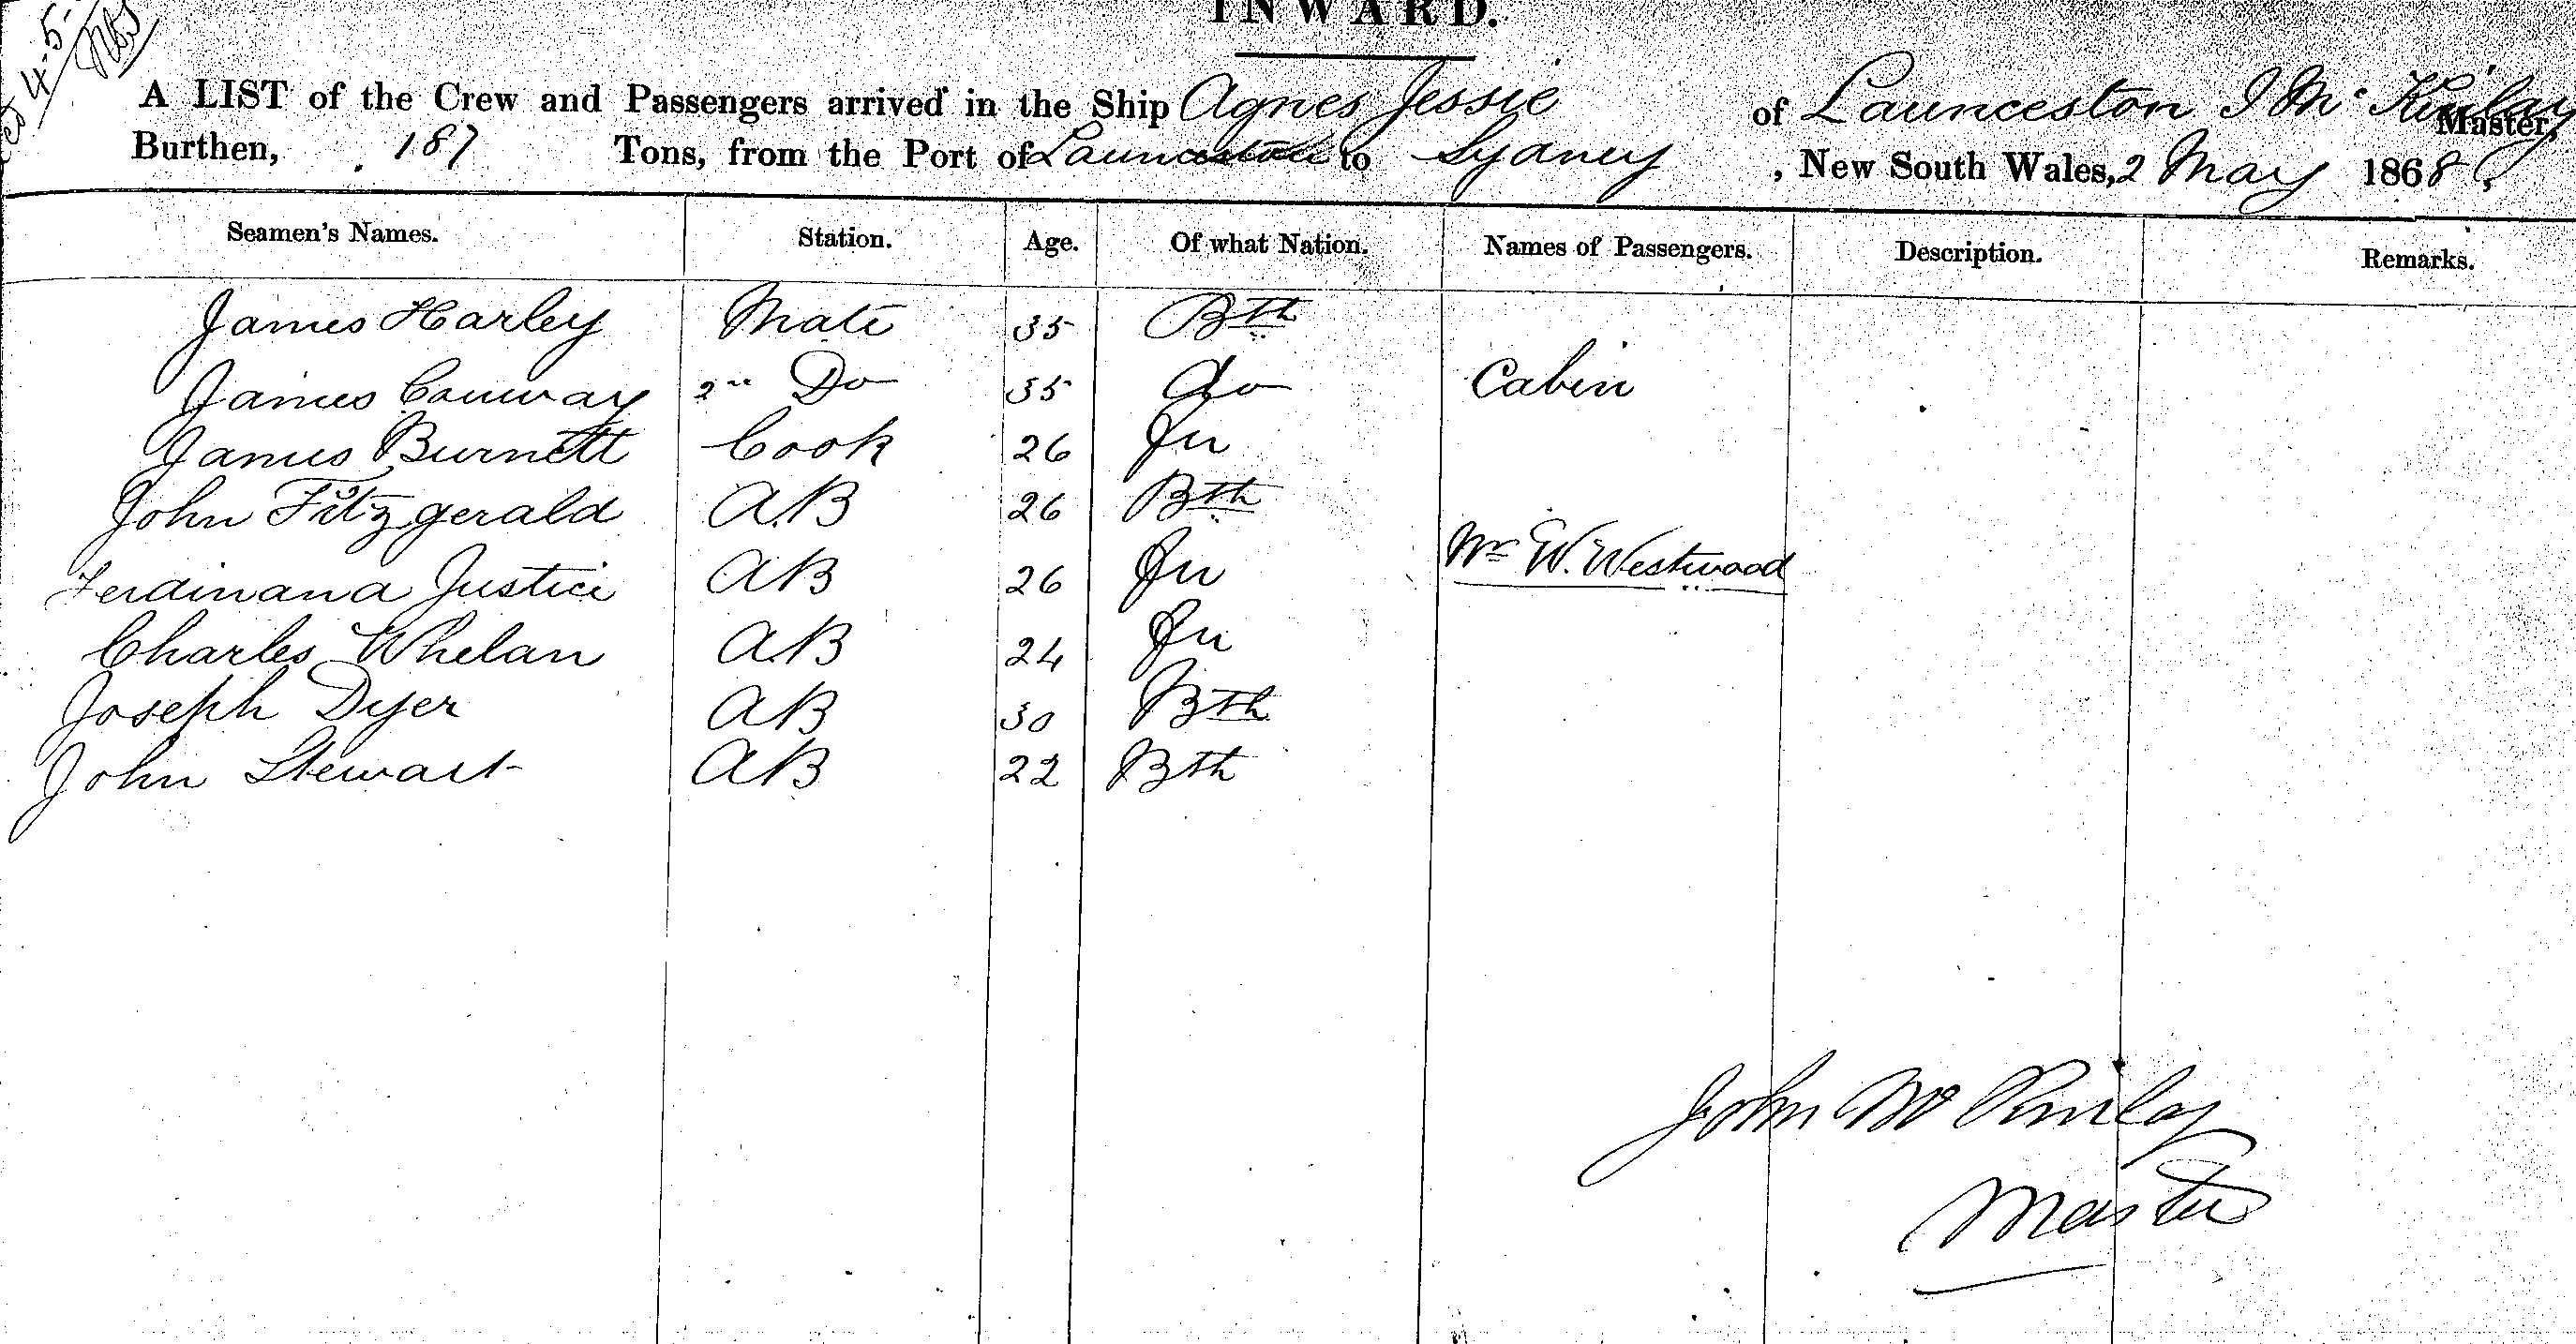 4-5-
INWARD.
A LIST of the Crew and Passengers arrived in the Ship Agnes Jessie of Launceston J Mc Kinlay Master,
Burthen, 187 Tons, from the Port of Launceston to Sydney, New South Wales, 2 May 1868,
Seamen's Names. Station. Age. Of what Nation. Names of Passengers. Description. Remarks.
James Harley Mate 35 Bth
James Conway 2nd Do 35 do Cabin
James Burnett Cook 26
John Fitzgerald A.B 26 Bth
Mr W. Westwood
Ferdinand Justice AB 26
Charles Whelan A.B 24
Joseph Dyer AB 30 Bth
John Stewart AB 22 Bth
John Mc Kinlay
Master